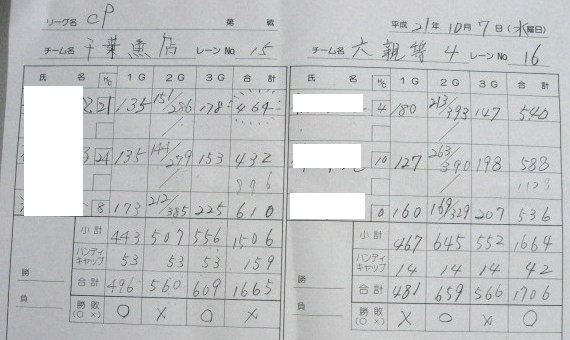 リーグ名 CP 第 戦
チーム名 千葉魚店 レーンNo. 15
氏 名 H/C 1G 2G 3G 合計
21 135 151/286 178 464
24 135 144/279 153 432
896
8 173 212/385 225 610
小計 443 507 556 1506
ハンディキャップ 53 53 53 159
合計 496 560 609 1665
勝 負 勝敗(○×) ○ × ○ ×
平成21年10月7日(水曜日)
チーム名 六親等4 レーンNo. 16
氏 名 H/C 1G 2G 3G 合計
4 180 213/393 147 540
10 127 263/390 198 588
1128
0 160 169/329 207 536
小計 467 645 552 1664
ハンディキャップ 14 14 14 42
合計 481 659 566 1706
勝 負 勝敗(○×) × ○ × ○